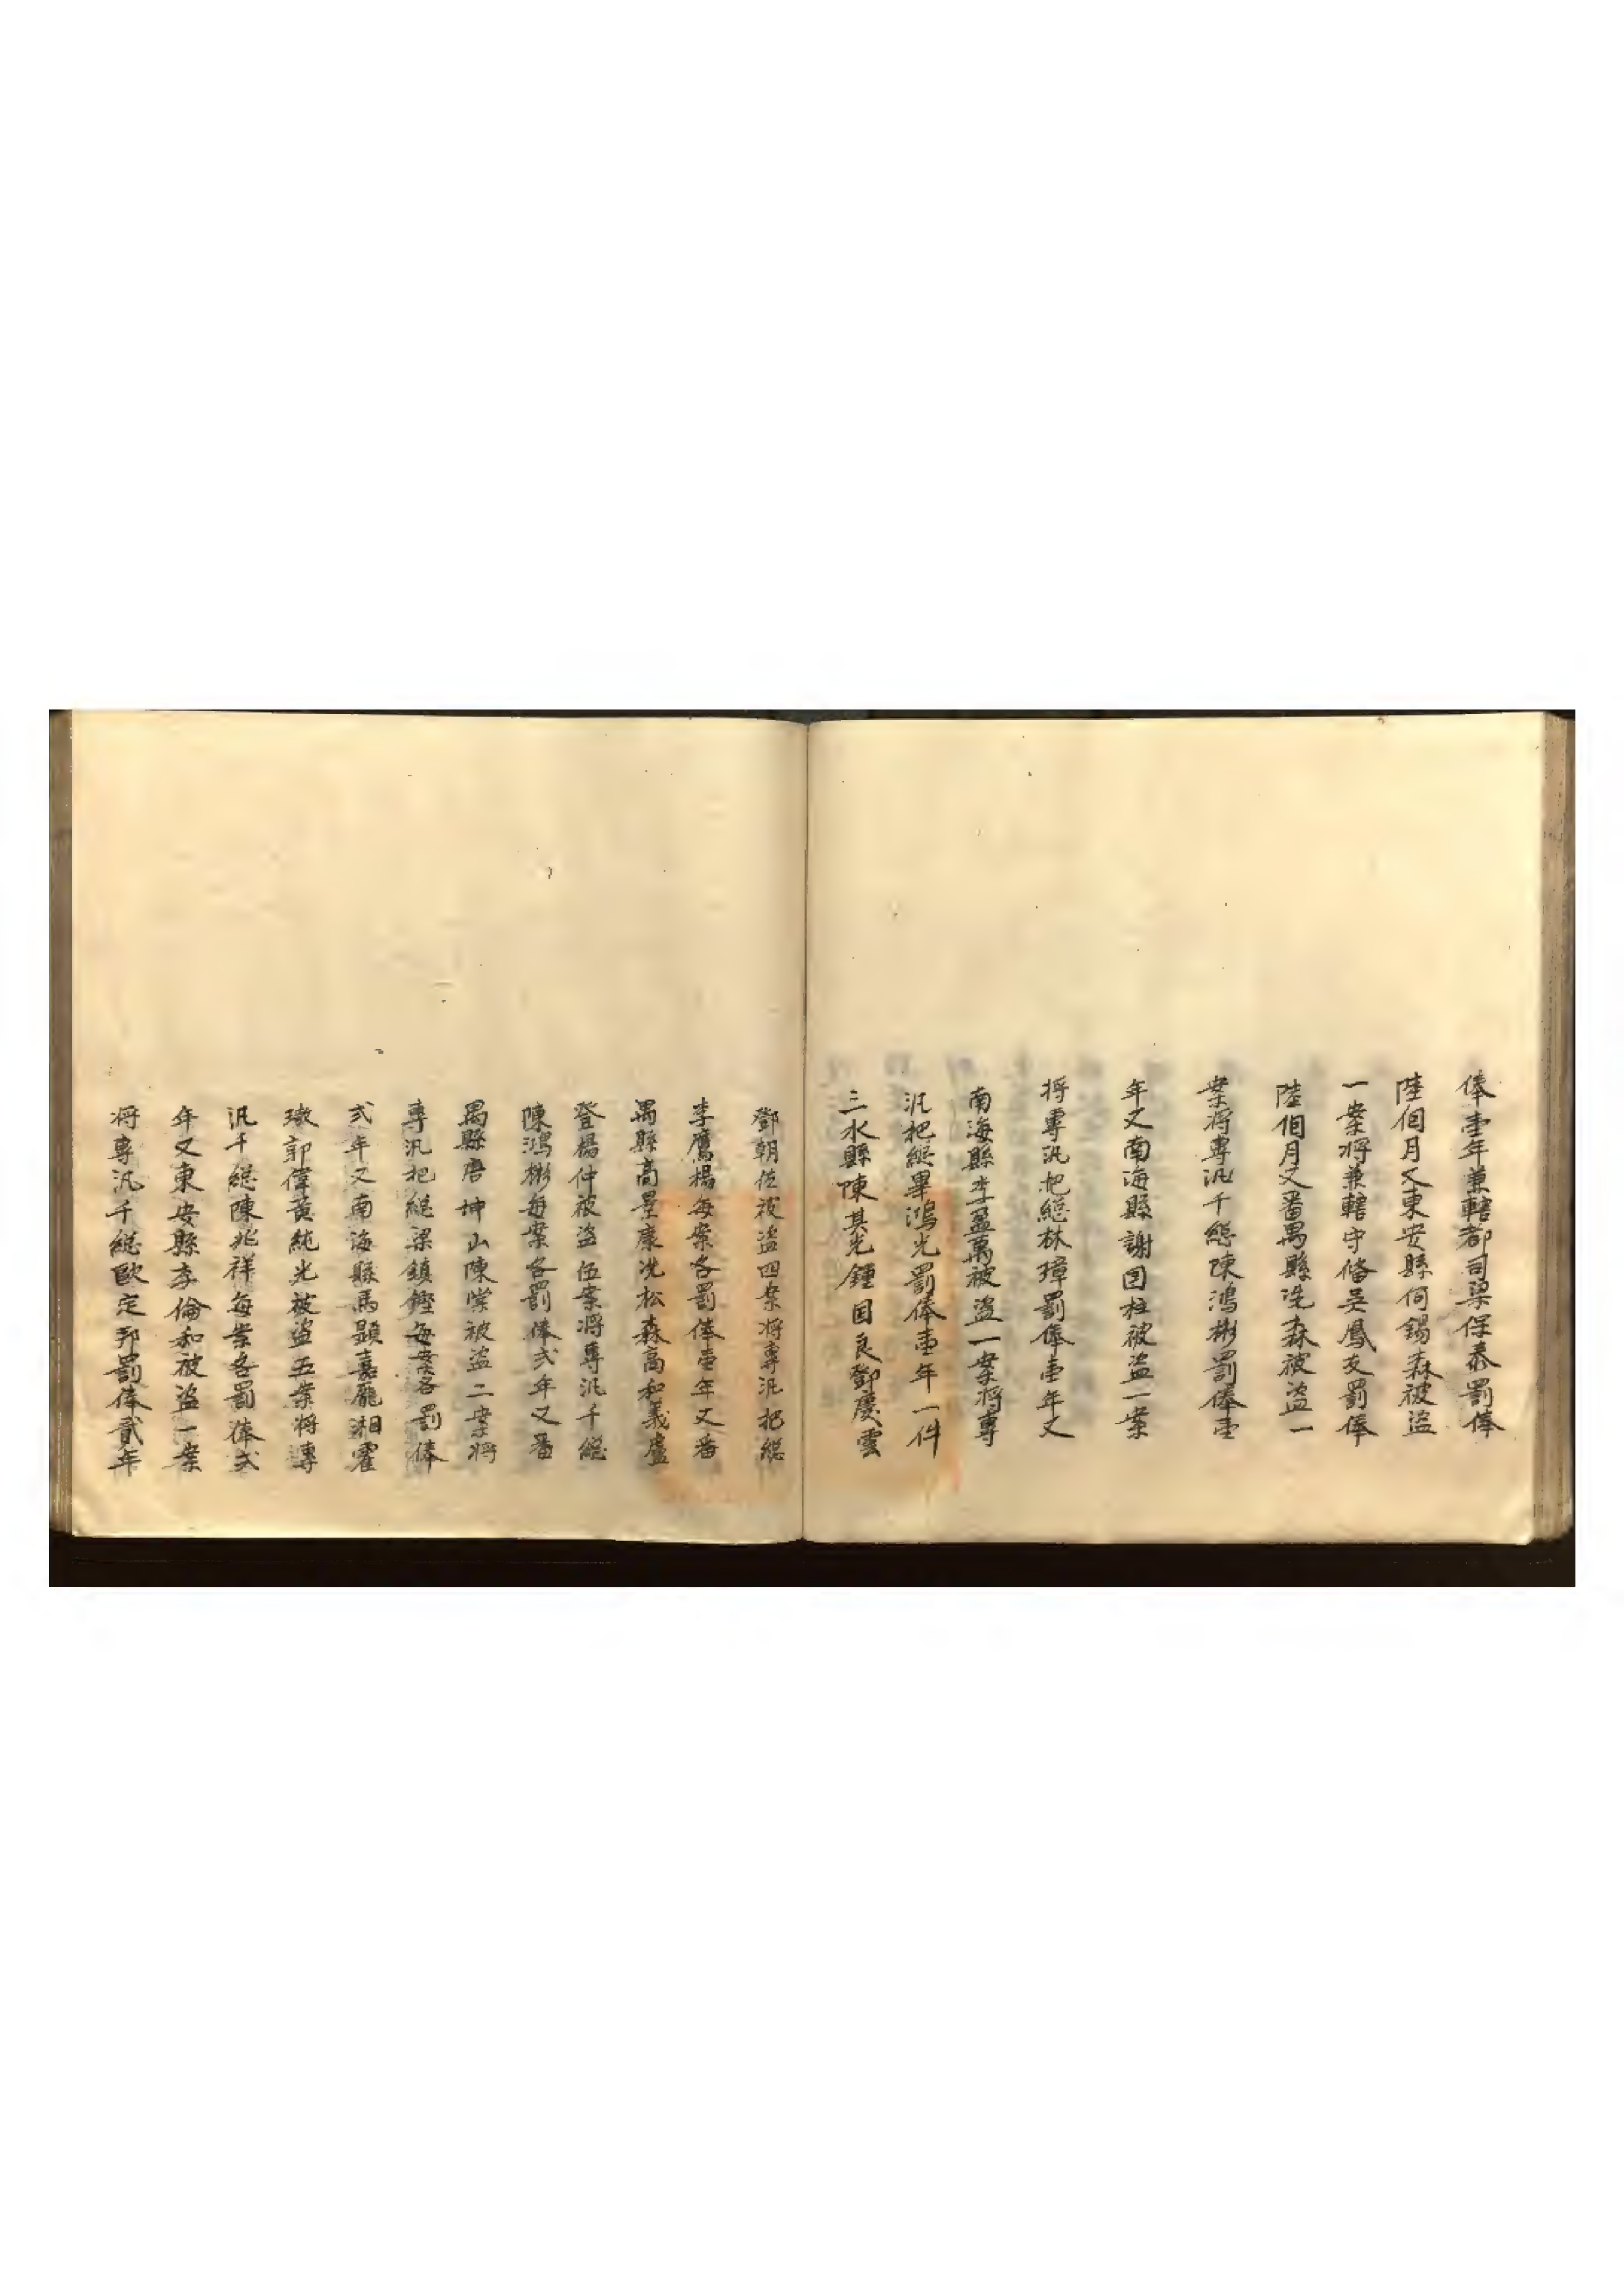 俸壹年兼轄都司梁保泰罰俸
陸個月又東安縣何錫森被盜
一案将兼轄守俻吳鳳友罰俸
陸個月又番禺縣冼森被盜一
案将專汛千縂陳鴻彬罰俸壹
年又南海縣謝囯柱被盜一案
将專汛把縂林璋罰俸壹年又
南海縣李盈萬被盜一案将專
汛把縂畢鴻光罰俸壹年一件
三水縣陳其光鍾囯良鄧慶雲
鄧朝佐被盜四案将專汛把縂
李鷹楊每案各罰俸壹年又番
禺縣高景康冼松森高和義盧
登楊仲被盜伍案将專汛千縂
陳鴻彬每案各罰俸弍年又番
禺縣唐坤山陳棠被盜二案将
專汛把縂梁鎮鏗每案各罰俸
弍年又南海縣馮顯嘉龎湘霍
璥郭偉黄純光被盜五案将專
汛千縂陳兆祥每案各罰俸弍
年又東安縣李倫和被盜一案
将專汛千縂歐定邦罰俸貳年